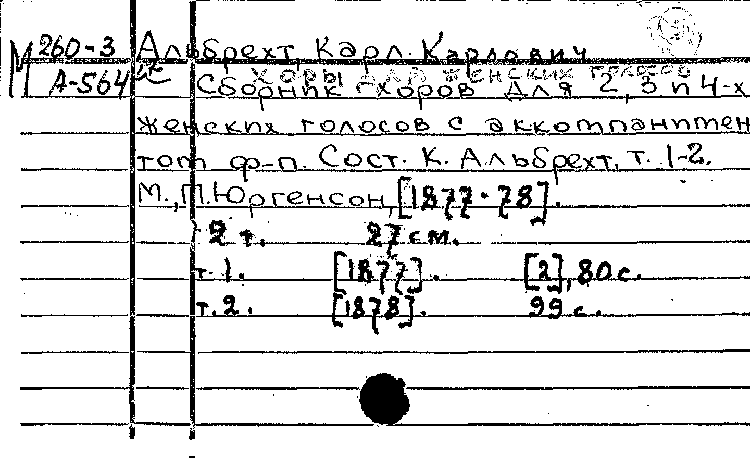 М 260-3 Альбрехт, Карл Карлович
А-564 хоры для женских голосов
Сборник хоров для 2, 3 и 4-х
женских голосов с аккомпанимен
том ф-п. Сост. К. Альбрехт, т. 1-2.
М., П. Юргенсон, [1877-78].
2 т. 27 см.
т. 1. [1877]. [2], 80 с.
т. 2. [1878]. 99 с.